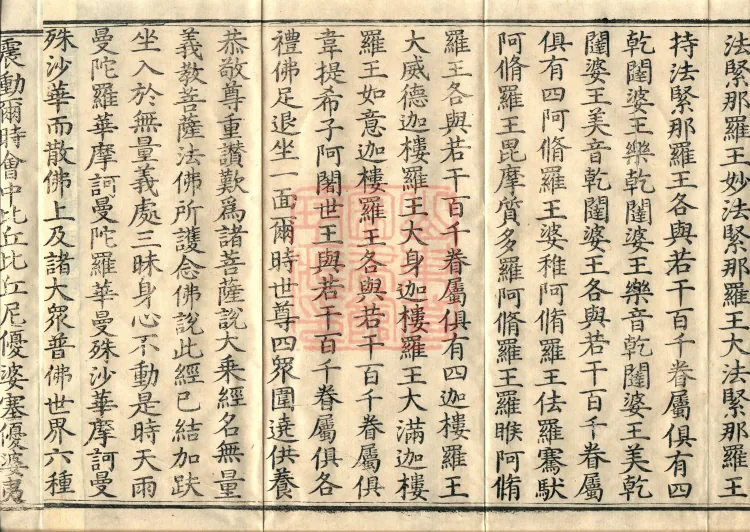 法緊那羅王妙法緊那羅王大法緊那羅王
持法緊那羅王各與若干百千眷屬俱有四
乾闥婆王樂乾闥婆王樂音乾闥婆王美乾
闥婆王美音乾闥婆王各與若干百千眷屬
俱有四阿脩羅王婆稚阿脩羅王佉羅騫馱
阿脩羅王毘摩質多羅阿脩羅王羅睺阿脩
羅王各與若干百千眷屬俱有四迦樓羅王
大威德迦樓羅王大身迦樓羅王大滿迦樓
羅王如意迦樓羅王各與若干百千眷屬俱
韋提希子阿闍世王與若干百千眷屬俱各
禮佛足退坐一面爾時世尊四眾圍遶供養
恭敬尊重讚歎為諸菩薩說大乘經名無量
義教菩薩法佛所護念佛說此經已結加趺
坐入於無量義處三昧身心不動是時天雨
曼陀羅華摩訶曼陀羅華曼殊沙華摩訶曼
殊沙華而散佛上及諸大眾普佛世界六種
震動爾時會中比丘比丘尼優婆塞優婆夷